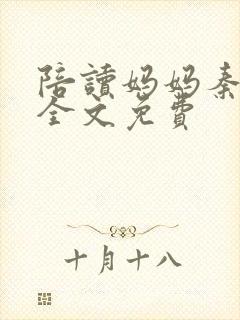 陪讀媽媽秦
全文免費
十月十八